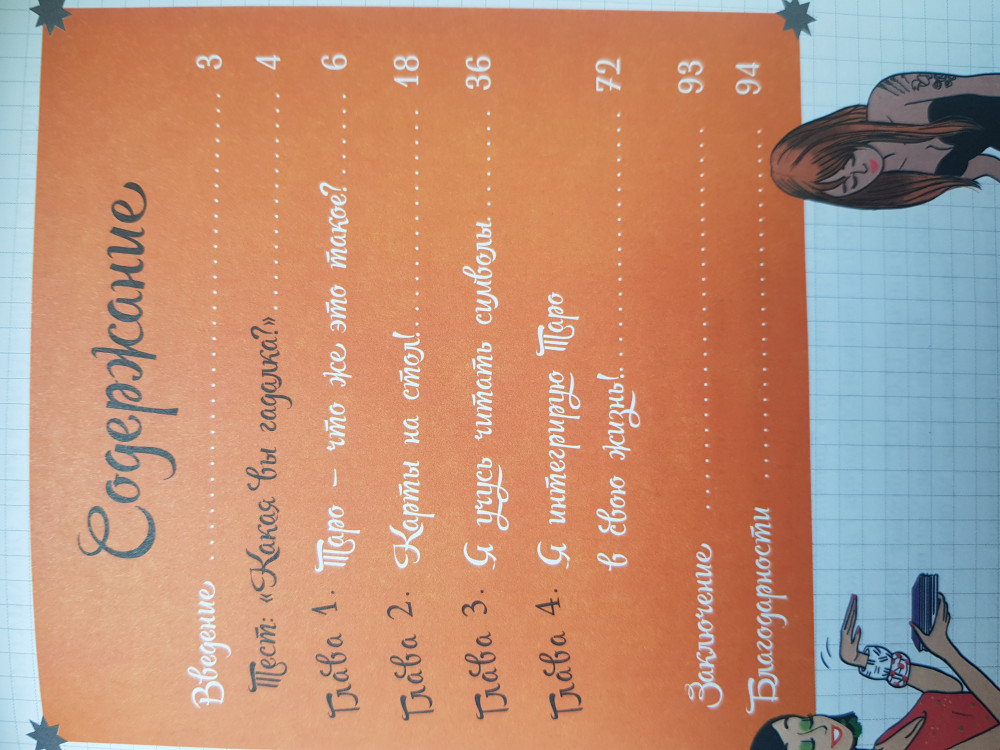 Содержание
Введение 3
Тест: «Какая вы гадалка?» 4
Глава 1. Таро – что же это такое? 6
Глава 2. Карты на стол! 18
Глава 3. Я учусь читать символы 36
Глава 4. Я интегрирую Таро
в свою жизнь! 72
Заключение 93
Благодарности 94